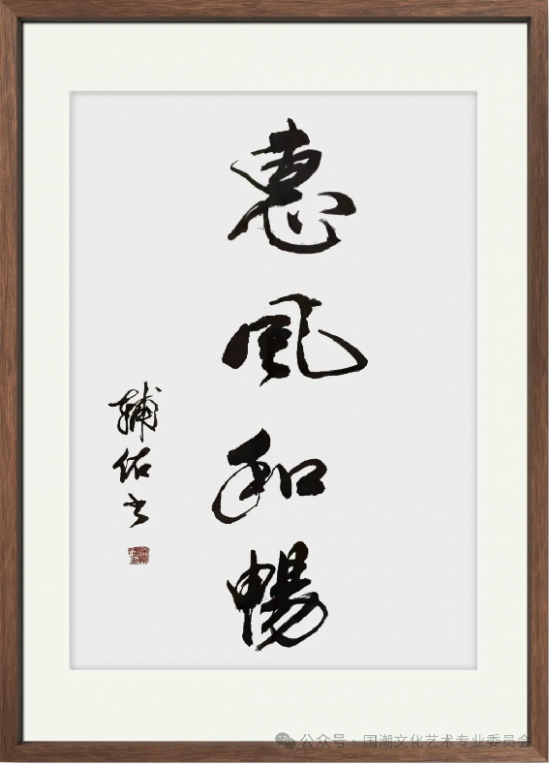 惠風和暢
輔佑书
公众号·国潮文化艺术专业委员会